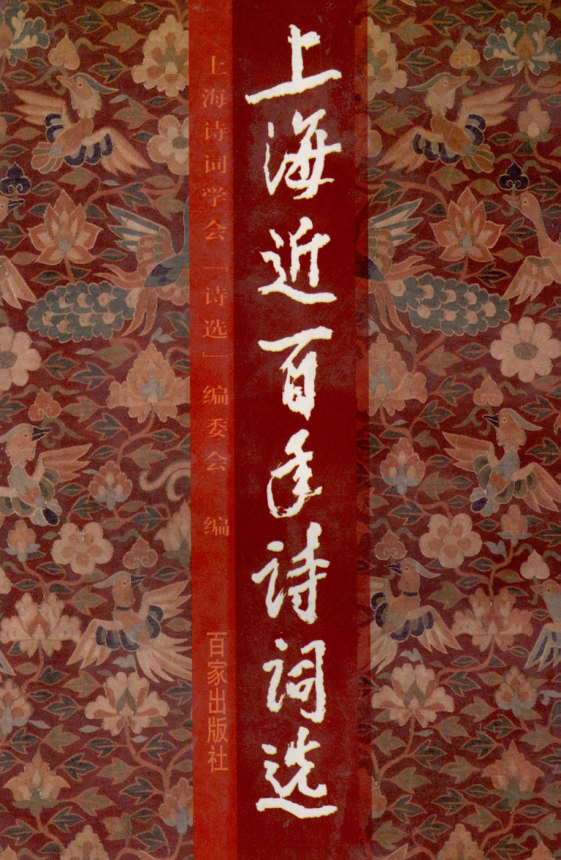 上海近百年诗词选
上海诗词学会「诗选」编委会 编
百家出版社